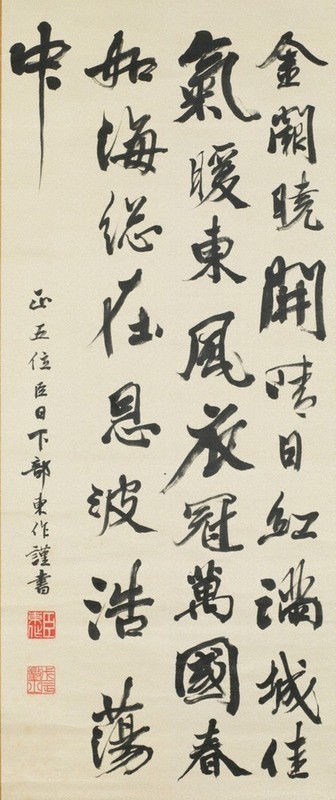 金闕曉開晴日紅滿城佳
氣暖東風衣冠萬國春
如海総在恩波浩蕩
中
正五位臣日下部東作謹書